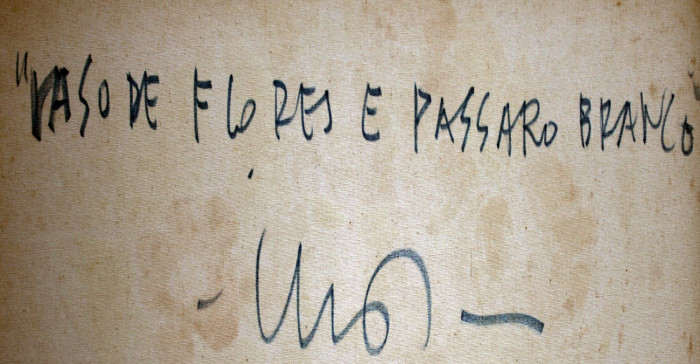 "VASO DE FLORES E PASSARO BRANCO"